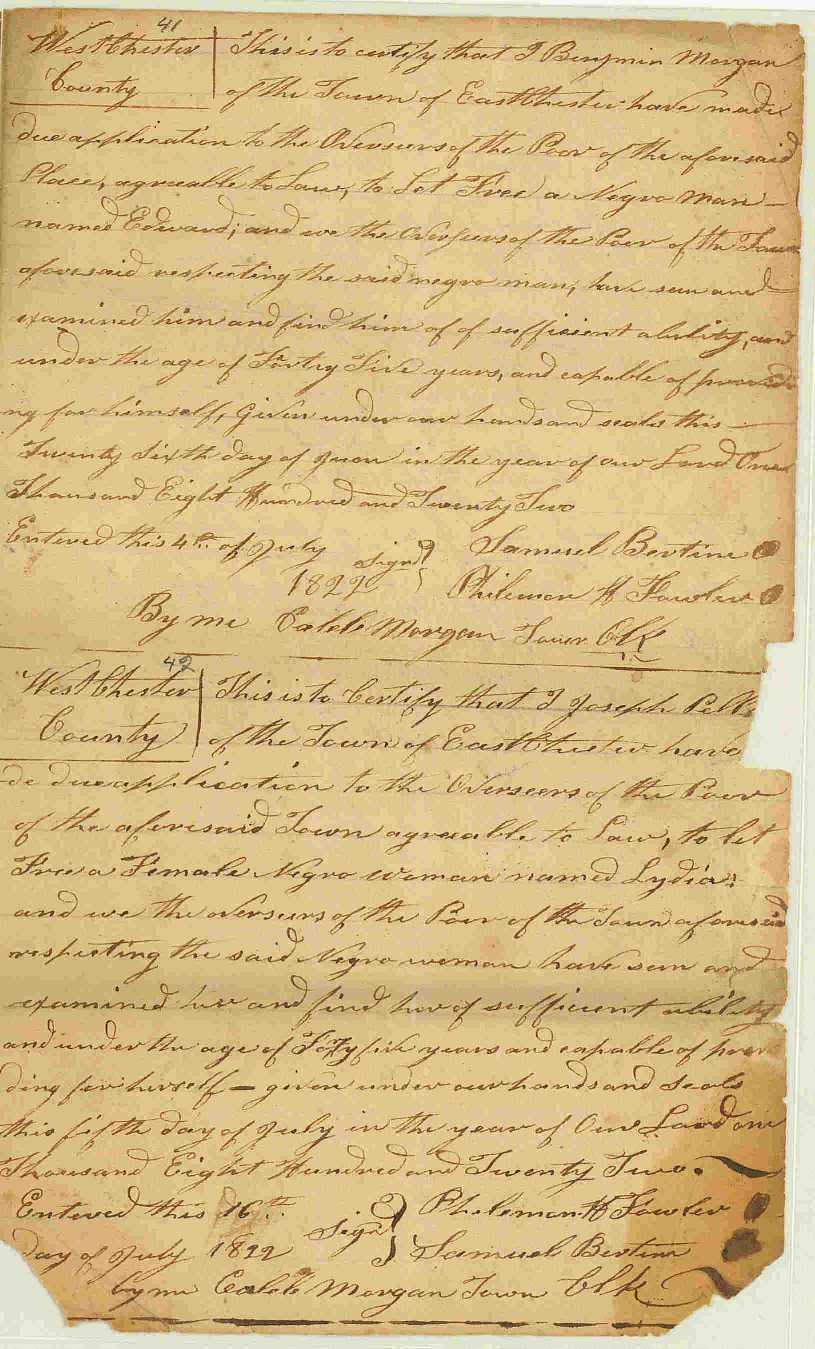 41
WestChester This is to certify that I Benjmin Morgan
County of the Town of EastChester have made
due application to the Overseers of the Poor of the aforesaid
Place, agreeable to Law, to Set Free a Negro man
named Edward; and we the Overseers of the Poor of the Town
aforesaid respecting the said negro man, have seen and
examined him and find him of of sufficient ability, and
under the age of Forty Five years, and capable of providi
ng for himself, Given under our hands and seals this
Twenty Sixth day of in the year of our Lord One
Thousand Eight Hundred and Twenty Two
Entered this 4th of July Signd Samuel Bertine
1822 Philemon H Fowler
By me Caleb Morgan Town Clk
42
WestChester This is to Certify that I Joseph Pell
County of the Town of EastChester have
de due application to the Overseers of the Poor
of the aforesaid Town agreeable to Law, to let
Free a Female Negro woman named Lydia:
and we the overseers of the Poor of the Town aforesaid
respecting the said Negro woman have seen and
examined her and find her of sufficient ability
and under the age of Forty five years and capable of provi
ding for herself – given under our hands and Seals
this fifth day of July in the year of Our Lord one
Thousand Eight Hundred and Twenty Two.
Entered this 16th Signd Philemon H Fowler
day of July 1822 Samuel Bertine
by me Caleb Morgan Town Clk